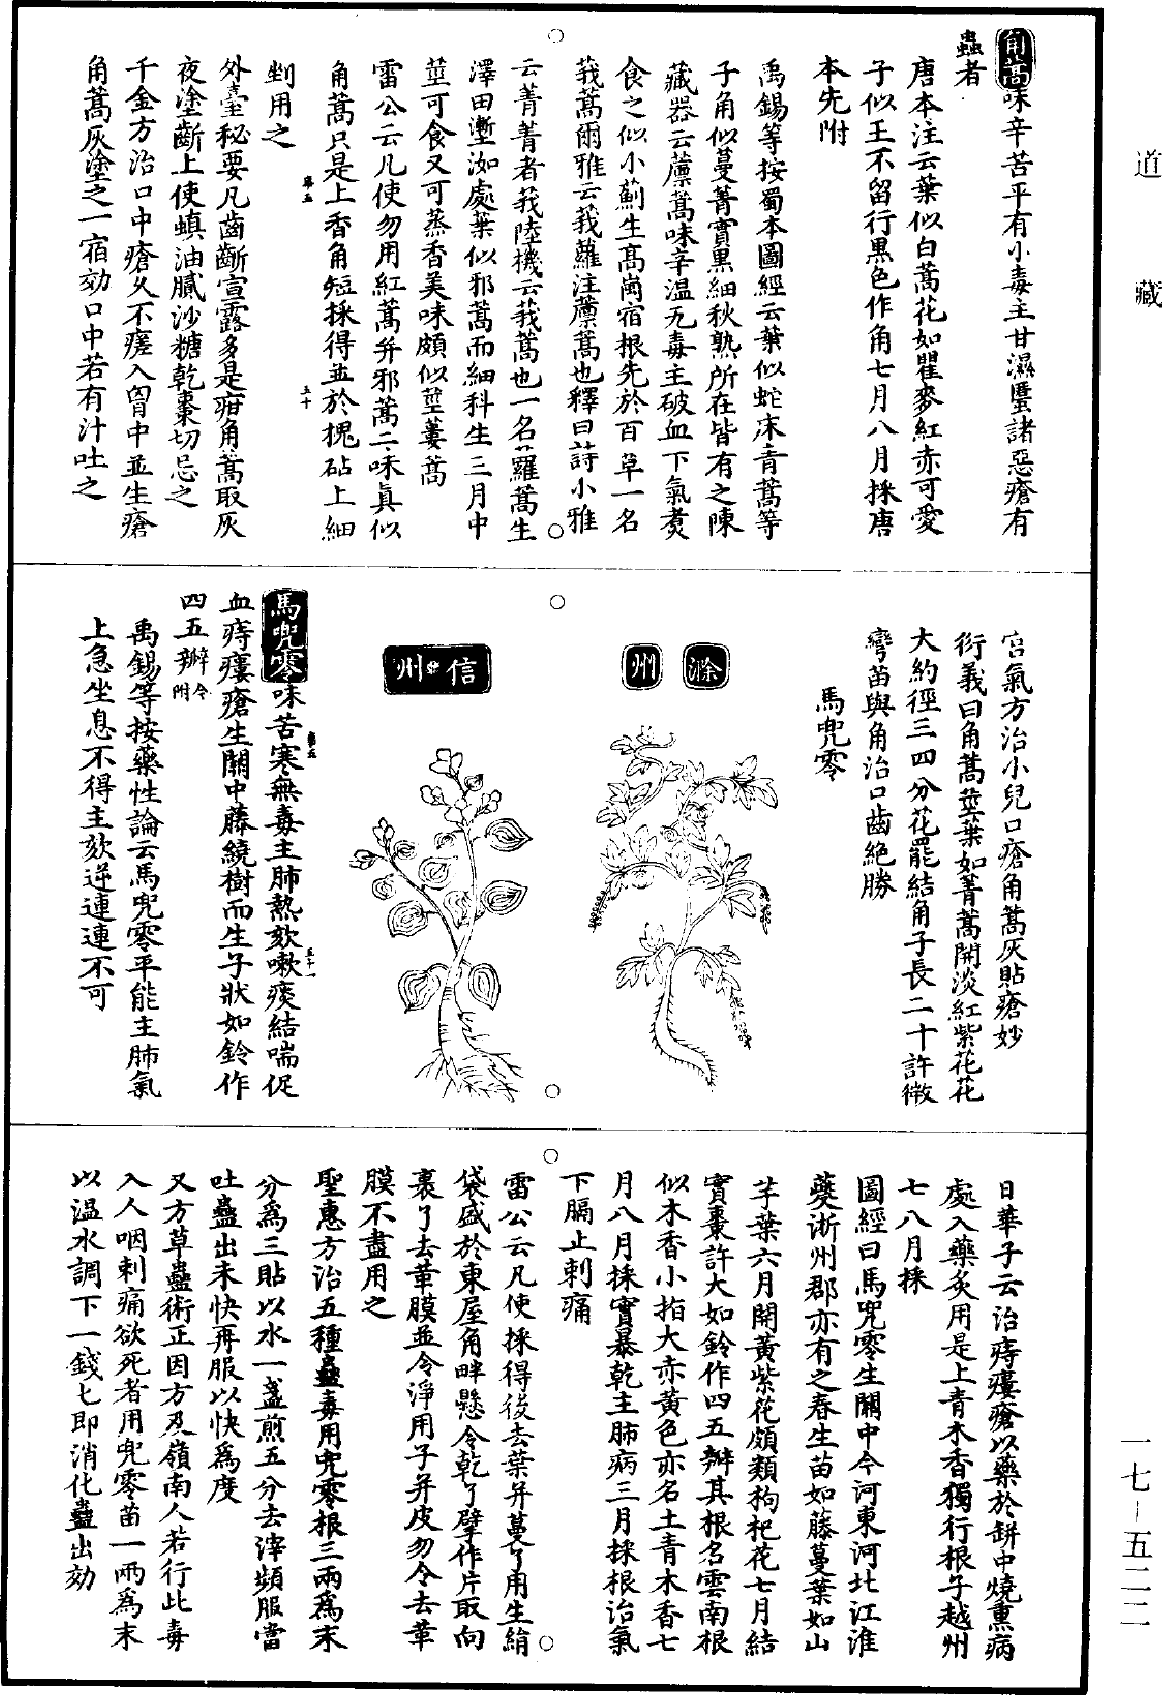 道藏
角蒿味辛苦平有小毒主甘濕䘌諸惡瘡有
蟲者
唐本注云葉似白蒿花如瞿麥紅赤可愛
子似王不留行黑色作角七月八月採唐
本先附
禹錫等按蜀本圖經云葉似蛇床青蒿等
子角似蔓菁實黑細秋熟所在皆有之陳
藏器云藘蒿味辛溫无毒主破血下氣煑
食之似小薊生高崗宿根先於百草一名
莪蒿爾雅云莪蘿注藘蒿也釋曰詩小雅
云菁菁者莪陸機云莪蒿也一名蘿蒿生
澤田壍洳處葉似邪蒿而細科生三月中
莖可食又可蒸香美味頗似蔞蒿
雷公云凡使勿用紅蒿并邪蒿二味真似
角蒿只是上香角短採得並於槐砧上細
剉用之
外臺秘要凡齒齗宣露多是疳角蒿取灰
夜塗齗上使蝢油膩沙糖乾棗切忌之
千金方治口中瘡久不瘥入胷中並生瘡
角蒿灰塗之一宿効口中若有汁吐之
宮氣方治小兒口瘡角蒿灰貼瘡妙
衍義曰角蒿莖葉如菁蒿開淡紅紫花花
大約徑三四分花罷結角子長二十許微
彎苗與角治口齒絶勝
馬兜零
滁州
信州
馬兜零味苦寒無毒主肺熱欬嗽痰結喘促
血痔瘻瘡生關中藤繞樹而生子狀如鈴作
四五瓣今附
禹錫等按藥性論云馬兜零平能主肺氣
上急坐息不得主欬逆連連不可
日華子云治痔瘻瘡以藥於缾中燒熏病
處入藥炙用是上青木香獨行根子越州
七八月採
圖經曰馬兜零生關中今河東河北江淮
夔浙州郡亦有之春生苗如藤蔓葉如山
芋葉六月開黃紫花頗類枸杞花七月結
實棗許大如鈴作四五瓣其根名雲南根
似木香小指大赤黃色亦名土青木香七
月八月採實暴乾主肺病三月採根治氣
下膈止刺痛
雷公云凡使採得後去葉并蔓了用生絹
袋盛於東屋角畔懸令乾了擘作片取向
裏了去革膜並令淨用子并皮勿令去革
膜不盡用之
聖惠方治五種蠱毒用兜零根三兩爲末
分爲三貼以水一盞煎五分去滓頻服當
吐蠱出未快再服以快爲度
又方草蠱術正因方及嶺南人若行此毒
入人咽刺痛欲死者用兜零苗一兩爲末
以溫水調下一錢七即消化蠱出効
一七-五二二